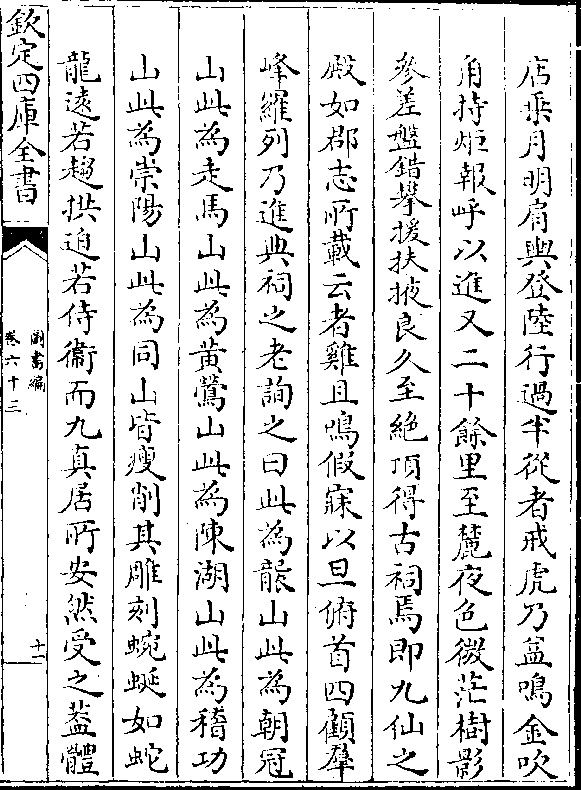 店乘月明肩輿登陸行過半從者戒虎乃益鳴金吹
角持炬報呼以進又二十餘里至麓夜色微茫樹影
參差盤錯攀援扶掖良久至絶頂得古祠焉即九仙之
殿如郡志所載云者雞且鳴假寐以旦俯首四顧羣
峰羅列乃進典祠之老詢之曰此為龍山此為朝冠
山此為走馬山此為黃鶯山此為陳湖山此為稽功
山此為崇陽山此為同山皆瘦削其雕刻蜿蜒如蛇
龍逺若趨拱迫若侍衞而九真居所安然受之葢體
欽定四庫全書
圖書編
卷六十三
十一